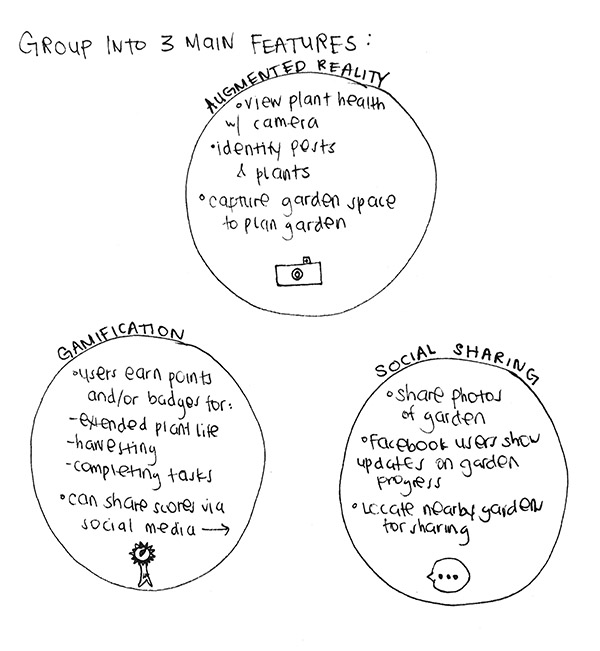 GROUP INTO 3 MAIN FEATURES:
AUGMENTED REALITY
•view plant health
w/ camera
•identify pests
& plants
•capture garden space
to plan garden
GAMIFICATION
•users earn points
and/or badges for:
-extended plant life
-harvesting
-completing tasks
•can share scores via
social media →
SOCIAL SHARING
•share photos
of garden
•Facebook users show
updates on garden
progress
•Locate nearby gardens
for sharing